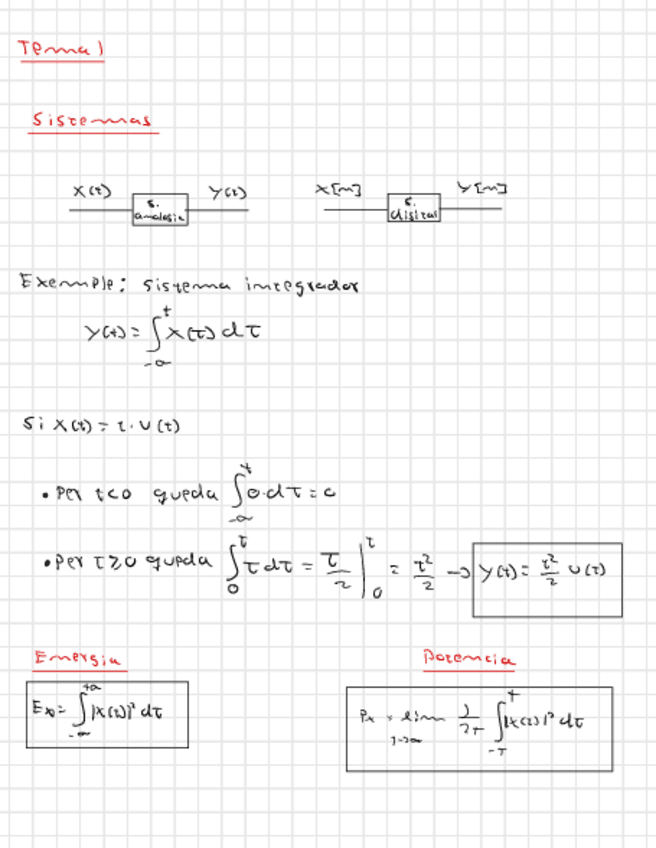 Tema 1
Sistemas
x(t) s. analogic y(t) x[n] s. digital y[n]
Exemple: sistema integrador
y(t) = ∫_{-∞}^{t} x(τ) dτ
Si x(t) = t · u(t)
• Per t<0 queda ∫_{-∞}^{t} 0·dτ = 0
• Per t≥0 queda ∫_{0}^{t} τ dτ = τ/2 |_{0}^{t} = t²/2 → y(t) = t²/2 u(t)
Energia Potencia
E∞ = ∫_{-∞}^{+∞} |x(t)|² dt
Px = lim_{T→∞} 1/2T ∫_{-T}^{T} |x(t)|² dt